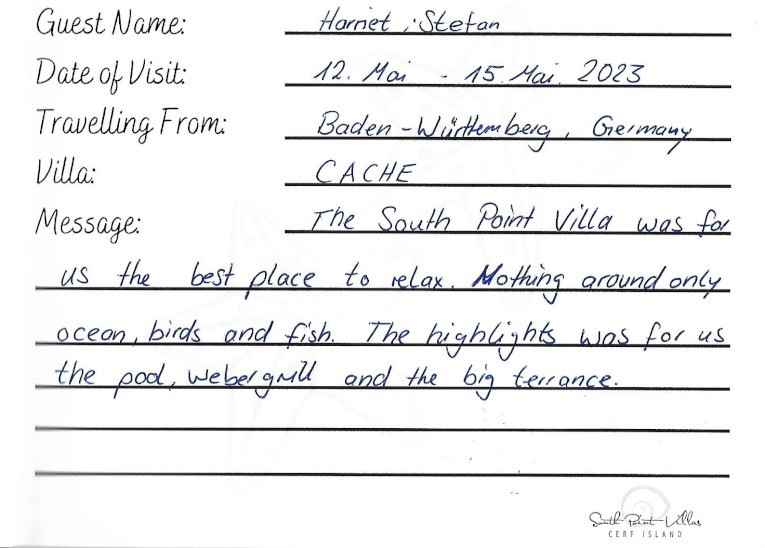 Guest Name: Harriet, Stefan
Date of Visit: 12. Mai - 15. Mai. 2023
Travelling From: Baden-Württemberg, Germany
Villa: CACHE
Message: The South Point Villa was for
us the best place to relax. Nothing around only
ocean, birds and fish. The highlights was for us
the pool, weber grill and the big terrance.
South Point Villas
CERF ISLAND